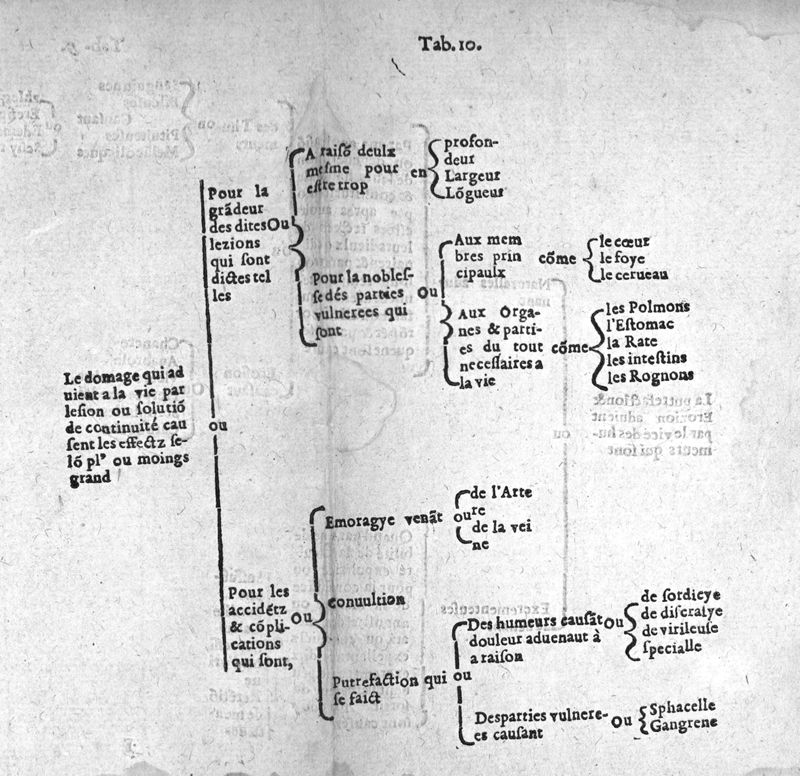 Tab. 10.
Le domage qui ad
uient a la vie par
lesion ou solutiõ
de continuité cau
sent les effectz se-
lõ pl' ou moings
grand
ou
Pour la
grãdeur
des dites
lezions
qui sont
dictes tel
les
Ou
A raisõ deulx
mesme pour
estre trop
en
profon-
deur
Largeur
Lõgueur
Pour la nobles-
se dés parties
vulnerees qui
sont
Ou
Aux mem
bres prin
cipaulx
cõme
le cœur
le foye
le cerueau
Aux Orga-
nes & parti-
es du tout
necessaires a
la vie
cõme
les Polmons
l'Estomac
la Rate
les intestins
les Rognons
Pour les
accidétz
& cõpli-
cations
qui sont,
ou
Emoragye venãt
ou
de l'Arte
re
de la vei
ne
conuultion
Putrefaction qui
se faict
ou
Des humeurs causãt
douleur aduenaut à
a raison
Ou
de sordicye
de discrasye
de virileuse
specialle
Desparties vulnere-
es causant
ou
Sphacelle
Gangrene